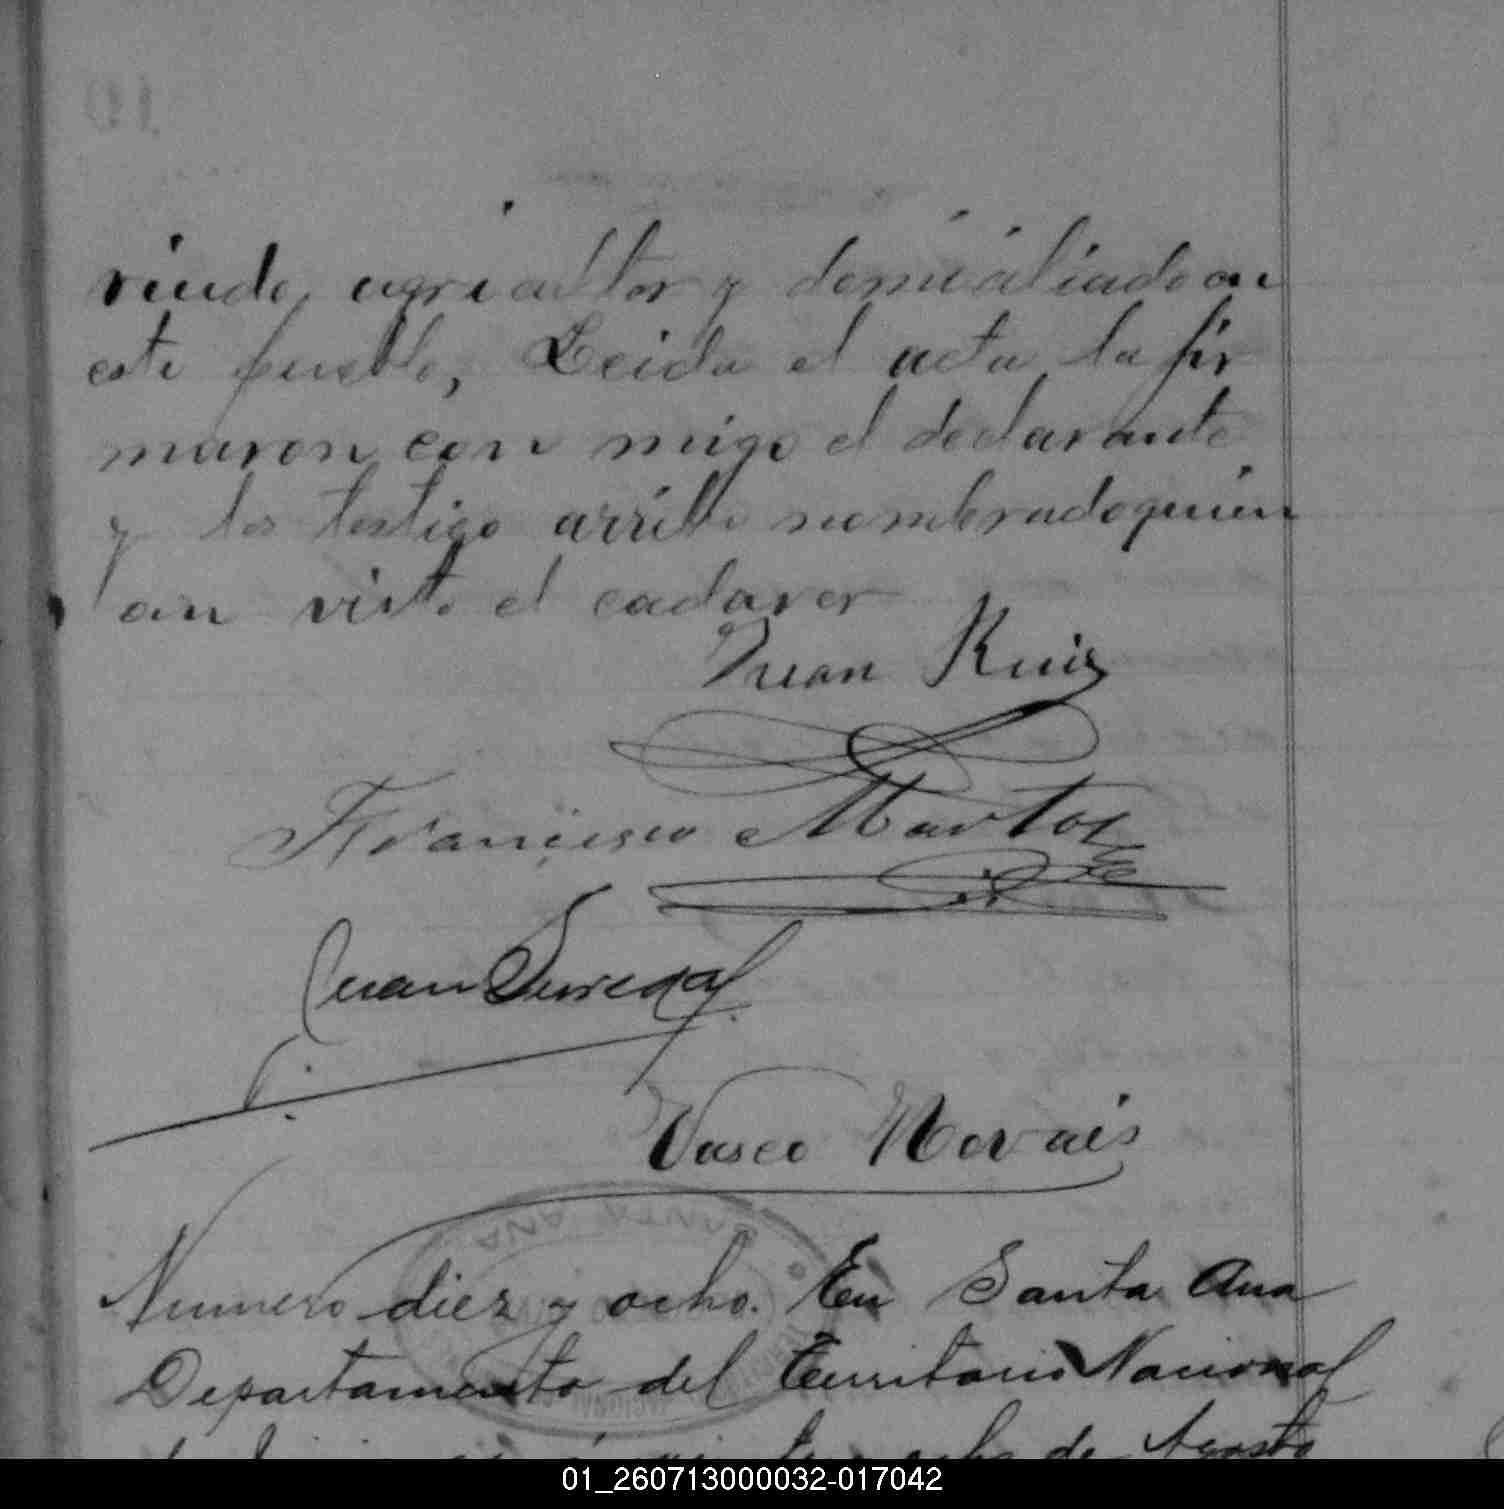 viudo, agricultor y domiciliado en
este pueblo, Leida el acta la fir
maron con migo el declarante
y los testigo arriba nombrado quien
an visto el cadaver
Juan Ruiz
Francisco Martos
Juan Suredal
Vasco Novais
SANTA ANA
Numero diez y ocho. En Santa Ana
Departamento del Territorio Nacional
de Agosto
01_260713000032-017042